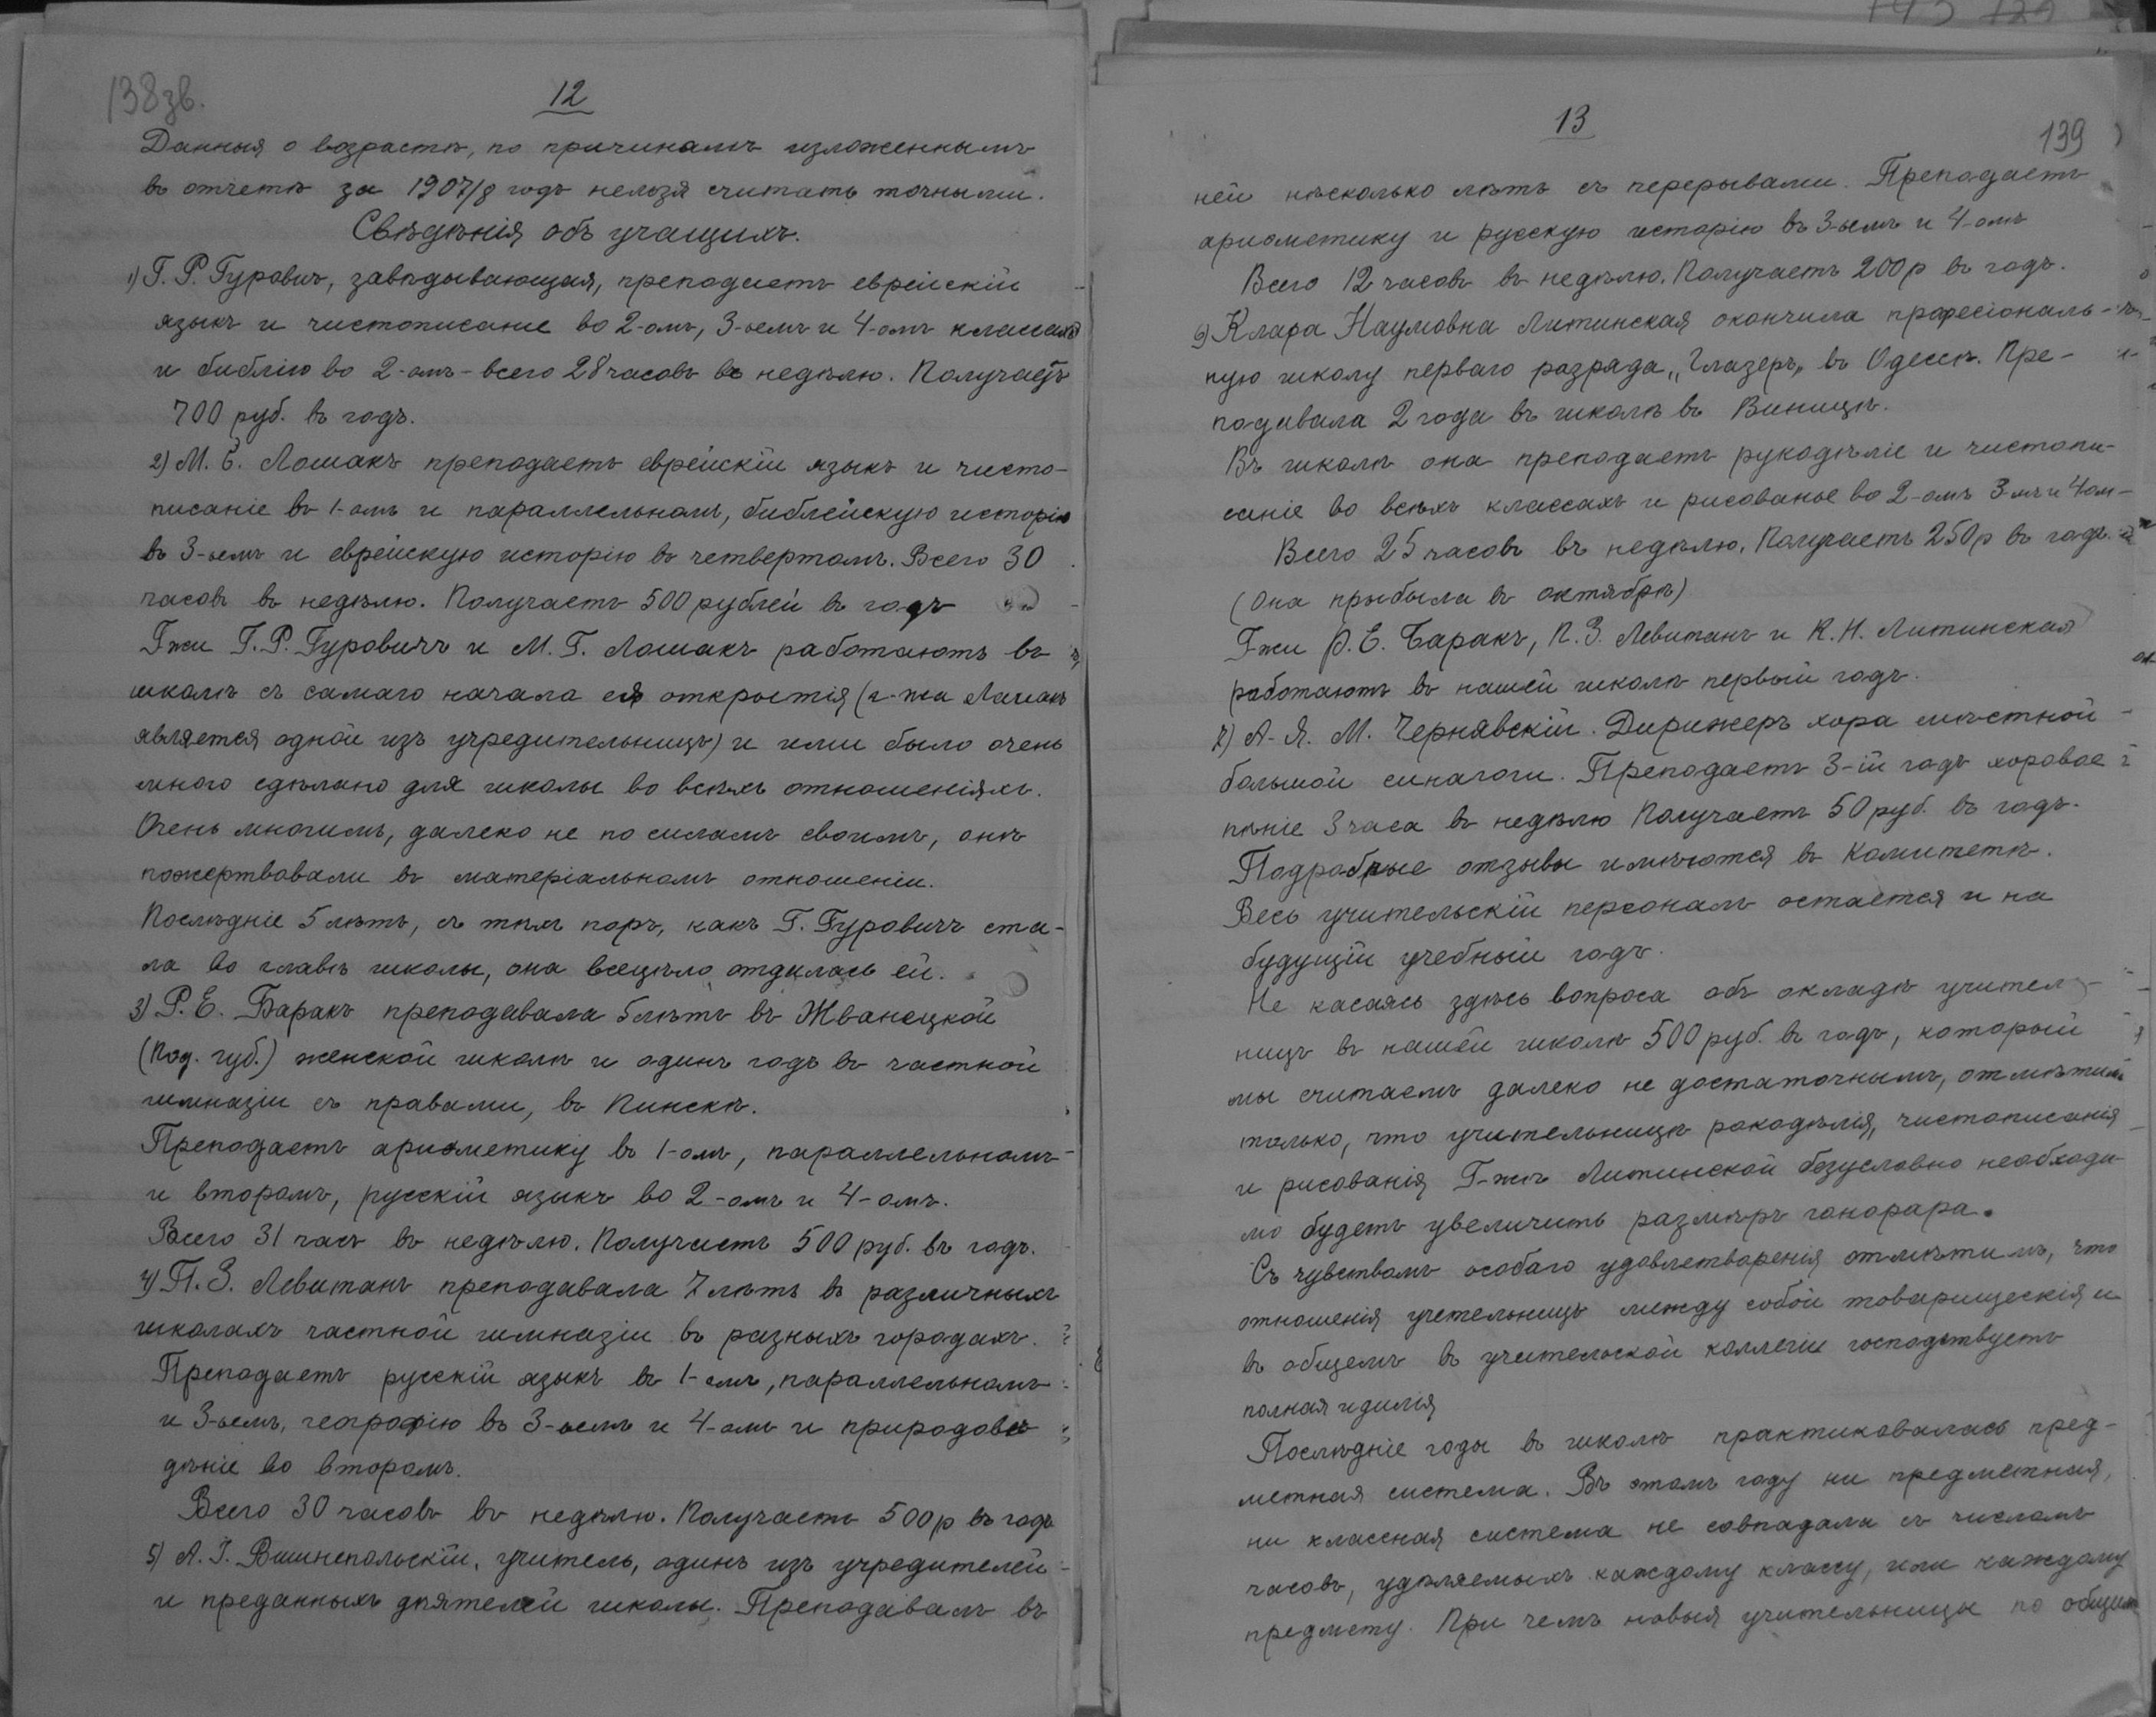 138зв.
12
Данныя о возрастѣ, по причинамъ изложеннымъ
въ отчетѣ за 1907/8 годъ нельзя считать точными.
Свѣдѣнія объ учащихъ.
1) Г. Р. Гуровичъ, завѣдывающая, преподаетъ еврейскій
языкъ и чистописание во 2-омъ, 3-емъ и 4-омъ классахъ
и библію во 2-омъ - всего 28 часовъ въ недѣлю. Получаетъ
700 руб. въ годъ.
2) М. Г. Лошакъ преподаетъ еврейскій языкъ и чисто-
писаніе въ 1-омъ и параллельномъ, библейскую исторію
въ 3-ьемъ и еврейскую исторію въ четвертомъ. Всего 30
часовъ въ недѣлю. Получаетъ 500 рублей въ годъ
Гжи Г. Р. Гуровичъ и М. Г. Лошакъ работаютъ въ
школѣ съ самаго начала ея открытія (г-жа Лошакъ
является одной изъ учредительницъ) и ими было очень
много сдѣлано для школы во всѣхъ отношеніяхъ.
Очень многимъ, далеко не по силамъ своимъ, онѣ
пожертвовали въ матеріальномъ отношеніи.
Послѣдніе 5 лѣтъ, съ тѣхъ поръ, какъ Г. Гуровичъ ста-
ла во главѣ школы, она всецѣло отдалась ей.
3) Р. Е. Баракъ преподавала 5 лѣтъ въ Жванецкой
(Под. губ.) женской школѣ и одинъ годъ въ частной
гимназіи съ правами, въ Пинскѣ.
Преподаетъ ариѳметику въ 1-омъ, параллельномъ
и второмъ, русскій языкъ во 2-омъ и 4-омъ.
Всего 31 часъ въ недѣлю. Получаетъ 500 руб. въ годъ.
4) П. З. Левитанъ преподавала 7 лѣтъ въ различныхъ
школахъ частной гимназіи въ разныхъ городахъ.
Преподаетъ русскій языкъ въ 1-омъ, параллельномъ
и 3-ьемъ, географію въ 3-ьемъ и 4-омъ и природовѣ
дѣніе во второмъ.
Всего 30 часовъ въ недѣлю. Получаетъ 500 р въ годъ
5) А. Г. Вишнепольскій, учитель, одинъ изъ учредителей
и преданныхъ дѣятелей школы. Преподавалъ въ
13
139
ней нѣсколько лѣтъ съ перерывами. Преподаетъ
ариѳметику и русскую исторію въ 3-ьемъ и 4-омъ
Всего 12 часовъ въ недѣлю. Получаетъ 200 р въ годъ.
6) Клара Наумовна Литинская окончила професіональ-
ную школу перваго разряда „Глазеръ„ въ Одессѣ. Пре-
подавала 2 года въ школѣ въ Виницѣ.
Въ школѣ она преподаетъ рукодѣліе и чистопи-
саніе во всѣхъ классахъ и рисованье во 2-омъ 3-мъ и 4ом-
Всего 25 часовъ въ недѣлю. Получаетъ 250 р въ годъ.
(Она прыбыла въ октябрѣ)
Гжи Р. Е. Баракъ, П. З. Левитанъ и К. Н. Литинская
работаютъ въ нашей школѣ первый годъ.
7) А. Я. М. Чернявскій. Дирижеръ хора мѣстной
большой синагоги. Преподаетъ 3-ій годъ хоровое
пѣніе 3 часа въ недѣлю Получаетъ 50 руб. въ годъ.
Подробные отзывы имѣются въ Комитетѣ.
Весь учительскій персоналъ остается и на
будущій учебный годъ.
Не касаясь здѣсь вопроса объ окладѣ учитель-
ницъ въ нашей школѣ 500 руб. въ годъ, который
мы считаемъ далеко не достаточнымъ, отмѣтимъ
только, что учительницѣ рокодѣлія, чистописанія
и рисованія Г-жѣ Литинской безусловно необходи-
мо будетъ увеличить размѣръ гонорара.
Съ чувствомъ особаго удовлетворенія отмѣтимъ, что
отношенія учетельницъ между собой товарищескія и
въ общемъ въ учительской коллегіи господствуетъ
полная идилія
Послѣдніе годы въ школѣ практиковалась пред-
метная система. Въ этомъ году ни предметная,
ни классная система не совпадала съ числомъ
часовъ, удѣляемыхъ каждому классу, или каждому
предмету. При чемъ новыя учительницы по общимъ